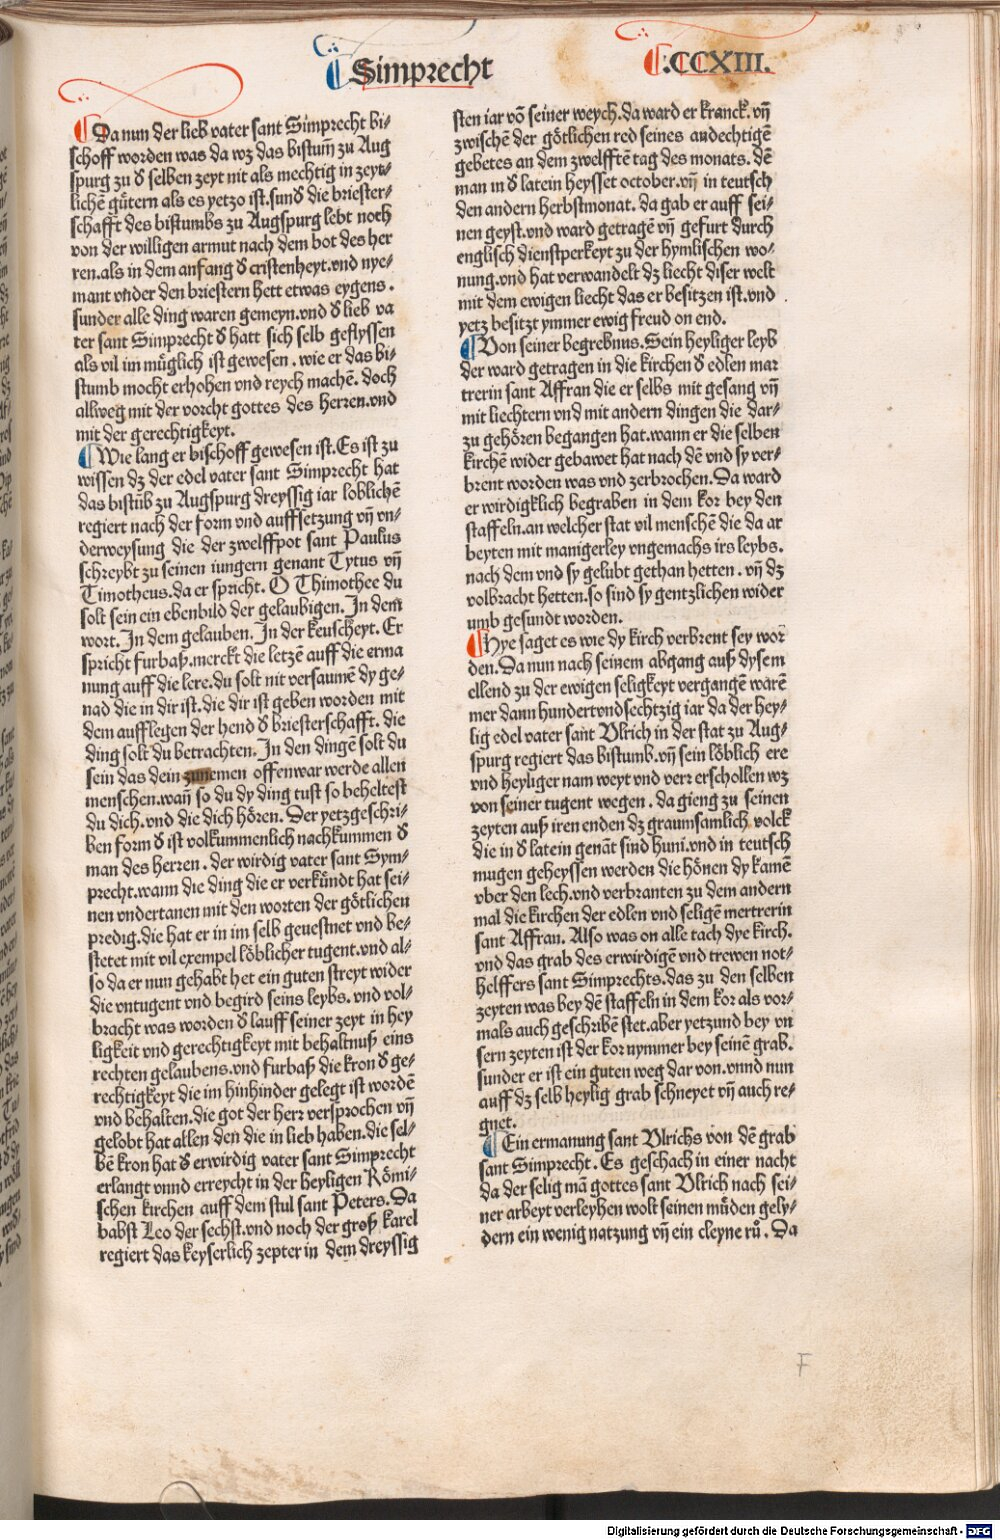 Simprecht
.CCXIII.
Da nun der lieb vater sant Simprecht bi-
schoff worden was da wz das bistum̄ zu Aug
spurg zu d̕ selben zeyt nit als mechtig in zeyt-
lichē gu̇tern als es yetzo ist.sund̕ die briester-
schafft des bistumbs zu Augspurg lebt noch
von der willigen armut nach dem bot des her
ren.als in dem anfang d̕ cristenheyt.vnd nye-
mant vnder den briestern hett etwas eygens.
sunder alle ding waren gemeyn.vnd d̕ lieb va
ter sant Simprecht d̕ hatt sich selb geflyssen
als vil im mu̇glich ist gewesen. wie er das bi-
stumb mocht erhohen vnd reych machē. doch
allweg mit der vorcht gottes des herren.vnd
mit der gerechtigkeyt.
Wie lang er bischoff gewesen ist.Es ist zu
wissen dz der edel vater sant Simprecht hat
das bistūb zu Augspurg dreyssig iar loblichē
regiert nach der form vnd auffsetzung vn̄ vn-
derweysung die der zwelffpot sant Paulus
schreybt zu seinen iungern genant Tytus vn̄
Timotheus.da er spricht. O Thimothee du
solt sein ein ebenbild der gelaubigen. In dem
wort. In dem gelauben. In der keuscheyt. Er
spricht furbaß.merckt die letzē auff die erma
nung auff die lere.du solt nit versaumē dy ge-
nad die in dir ist.die dir ist geben worden mit
dem aufflegen der hend d̕ briesterschafft. die
ding solt du betrachten. In den dingē solt du
sein das dein zunemen offenwar werde allen
menschen.wan̄ so du dy ding tust so beheltest
du dich.vnd die dich hören. Der yetzgeschri-
ben form d̕ ist volkummenlich nachkummen d̕
man des herren. der wirdig vater sant Sym-
precht.wann die ding die er verku̇ndt hat sei-
nen vndertanen mit den worten der götlichen
predig.die hat er in im selb geuestnet vnd be-
stetet mit vil exempel löblicher tugent.vnd al-
so da er nun gehabt het ein guten streyt wider
die vntugent vnd begird seins leybs. vnd vol-
bracht was worden d̕ lauff seiner zeyt in hey
ligkeit vnd gerechtigkeyt mit behaltnuß eins
rechten gelaubens.vnd furbaß die kron d̕ ge-
rechtigkeyt die im hinhinder gelegt ist wordē
vnd behalten.die got der herr versprochen vn̄
gelobt hat allen den die in lieb haben.die sel-
bē kron hat d̕ erwirdig vater sant Simprecht
erlangt vnnd erreycht in der heyligen Römi-
schen kirchen auff dem stul sant Peters. Da
babst Leo der sechst.vnd noch der groß karel
regiert das keyserlich zepter in dem dreyssig
sten iar vō seiner weych.da ward er kranck. vn̄
zwischē der götlichen red seines andechtigē
gebetes an dem zwelfftē tag des monats. dē
man in d̕ latein heysset october.vn̄ in teutsch
den andern herbstmonat. da gab er auff sei-
nen geyst.vnd ward getragē vn̄ gefurt durch
englisch dienstperkeyt zu der hymlischen wo-
nung.vnd hat verwandelt dz liecht diser welt
mit dem ewigen liecht das er besitzen ist.vnd
yetz besitzt ymmer ewig freud on end.
Von seiner begrebnus.Sein heyliger leyb
der ward getragen in die kirchen d̕ edlen mar
trerin sant Affran die er selbs mit gesang vn̄
mit liechtern vnd mit andern dingen die dar-
zu gehören begangen hat.wann er die selben
kirchē wider gebawet hat nach dē vnd sy ver-
brent worden was vnd zerbrochen.Da ward
er wirdigklich begraben in dem kor bey den
staffeln.an welcher stat vil menschē die da ar
beyten mit manigerley vngemachs irs leybs.
nach dem vnd sy gelubt gethan hetten. vn̄ dz
volbracht hetten.so sind sy gentzlichen wider
umb gesundt worden.
Hye saget es wie dy kirch verbrent sey wor
den.Da nun nach seinem abgang auß dysem
ellend zu der ewigen seligkeyt vergangē warē
mer dann hundertvndsechtzig iar da der hey-
lig edel vater san̄t Vlrich in der stat zu Aug-
spurg regiert das bistumb.vn̄ sein löblich ere
vnd heyliger nam weyt vnd verr erschollen wz
von seiner tugent wegen. da gieng zu seinen
zeyten auß iren enden dz graumsamlich volck
die in d̕ latein genāt sind huni.vnd in teutsch
mugen geheyssen werden die hönen dy kamē
vber den lech.vnd verbranten zu dem andern
mal die kirchen der edlen vnd seligē mertrerin
sant Affran. Also was on alle tach dye kirch.
vnd das grab des erwirdigē vnd trewen not-
helffers sant Simprechts.das zu den selben
zeyten was bey dē staffeln in dem kor als vor-
mals auch geschribē stet.aber yetzund bey vn
sern zeyten ist der kor nymmer bey seinē grab.
sunder er ist ein guten weg dar von.vnnd nun
auff dz selb heylig grab schneyet vn̄ auch re-
gnet.
Ein ermanung sant Vlrichs von dē grab
sant Simprecht. Es geschach in einer nacht
da der selig mā gottes sant Vlrich nach sei-
ner arbeyt verleyhen wolt seinen mu̇den gely-
dern ein wenig natzung vn̄ ein cleyne ru̇. Da
F
Digitalisierung gefördert durch die Deutsche Forschungsgemeinschaft - DFG